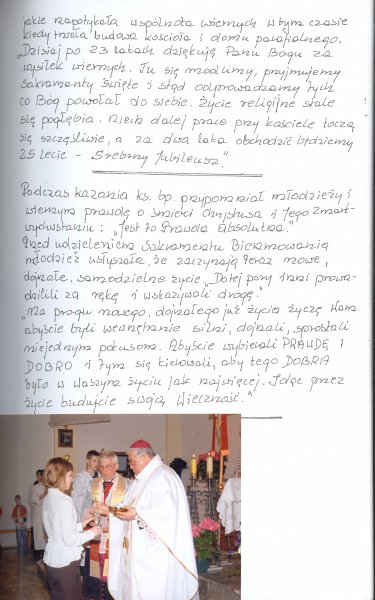 jakie napotykała wspólnota wiernych w tym czasie
kiedy trwała budowa kościoła i domu parafialnego.
"Dzisiaj po 23 latach dziękuję Panu Bogu za
wysiłek wiernych. Tu się modlimy, przyjmujemy
sakramenty święte i stąd odprowadzamy tych
co Bóg powołał do siebie. Życie religijne stale
się pogłębia. Niech dalej prace przy kościele toczą
się szczęśliwie, a za dwa lata obchodzić będziemy
25 lecie - Srebrny Jubileusz."
Podczas kazania ks. bp. przypomniał młodzieży i
wiernym prawdę o śmierci Chrystusa i Jego Zmart-
wychwstaniu: "Jest to Prawda Absolutna."
Przed udzieleniem Sakramentu Bierzmowania
młodzież usłyszała, że zaczynają teraz nowe,
dojrzałe, samodzielne życie. "Dotej pory inni prowa-
dzilili za rękę i wskazywali drogę."
"Na progu nowego, dojrzałego już życia życzę Wam
abyście byli wewnętrznie silni, dojrzali, sprostali
niejednym pokusom. Abyście wybierali PRAWDĘ i
DOBRO i tym się kierowali, aby tego DOBRA
było w Waszym życiu jak najwięcej. Idąc przez
życie budujcie swoją Wieczność."